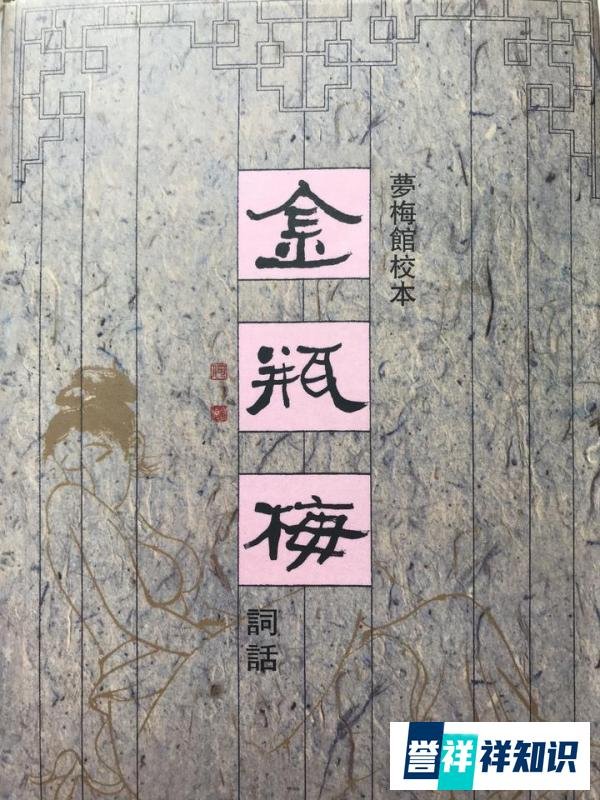 夢梅館校本
金
瓶
梅
詞話
誉祥祥知识